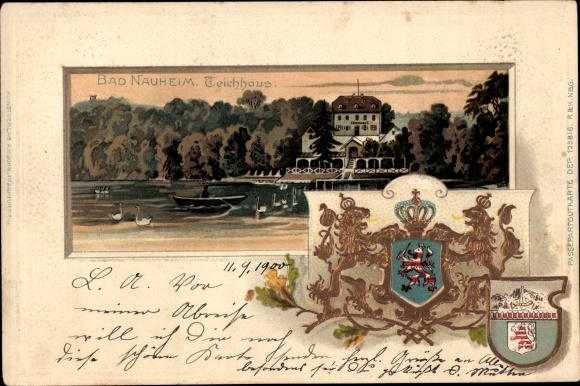 BAD NAUHEIM. Teichhaus.
PASSEPARTOUTKARTE DEP. 123818. R & K. NBG.
11.9.1900
L. A. Vor
meiner Abreise
will ich Dir noch
diese schöne Karte senden, herzl. Grüße an Alle
besonders sei Du
Mutter